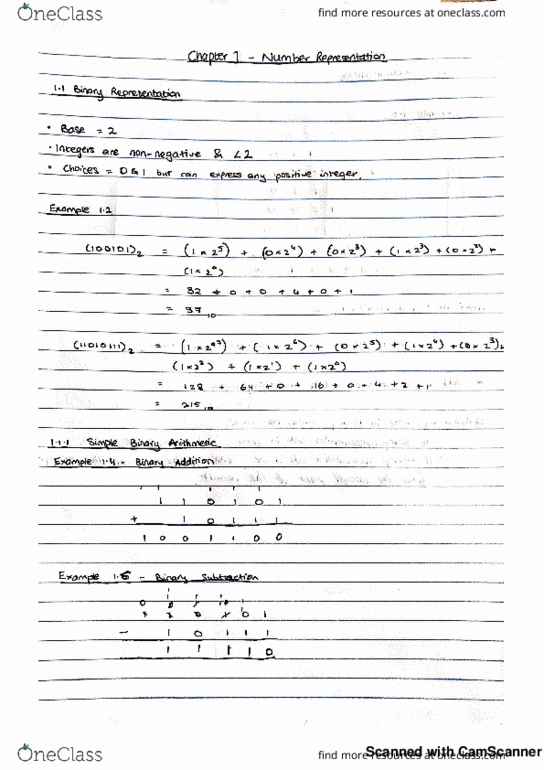 OneClass
find more resources at oneclass.com
Chapter 1 - Number Representation
1.1 Binary Representation
• Base = 2
• Integers are non-negative & < 2
• Choices = 0 & 1 but can express any positive integer.
Example 1.2
(100101)₂ = (1 × 2⁵) + (0 × 2⁴) + (0 × 2³) + (1 × 2²) + (0 × 2¹) +
(1 × 2⁰)
= 32 + 0 + 0 + 4 + 0 + 1
= 37₁₀
(11010111)₂ = (1 × 2⁷) + (1 × 2⁶) + (0 × 2⁵) + (1 × 2⁴) + (0 × 2³) +
(1 × 2²) + (1 × 2¹) + (1 × 2⁰)
= 128 + 64 + 0 + 16 + 0 + 4 + 2 + 1
= 215₁₀
1.1.1 Simple Binary Arithmetic
Example 1.4 - Binary Addition
1 1 0 1 0 1
+ 1 0 1 1 1
1 0 0 1 1 0 0
Example 1.5 - Binary Subtraction
- 1 0 1 1 1
1 1 1 1 0
OneClass
find more resources at oneclass.com
Scanned with CamScanner